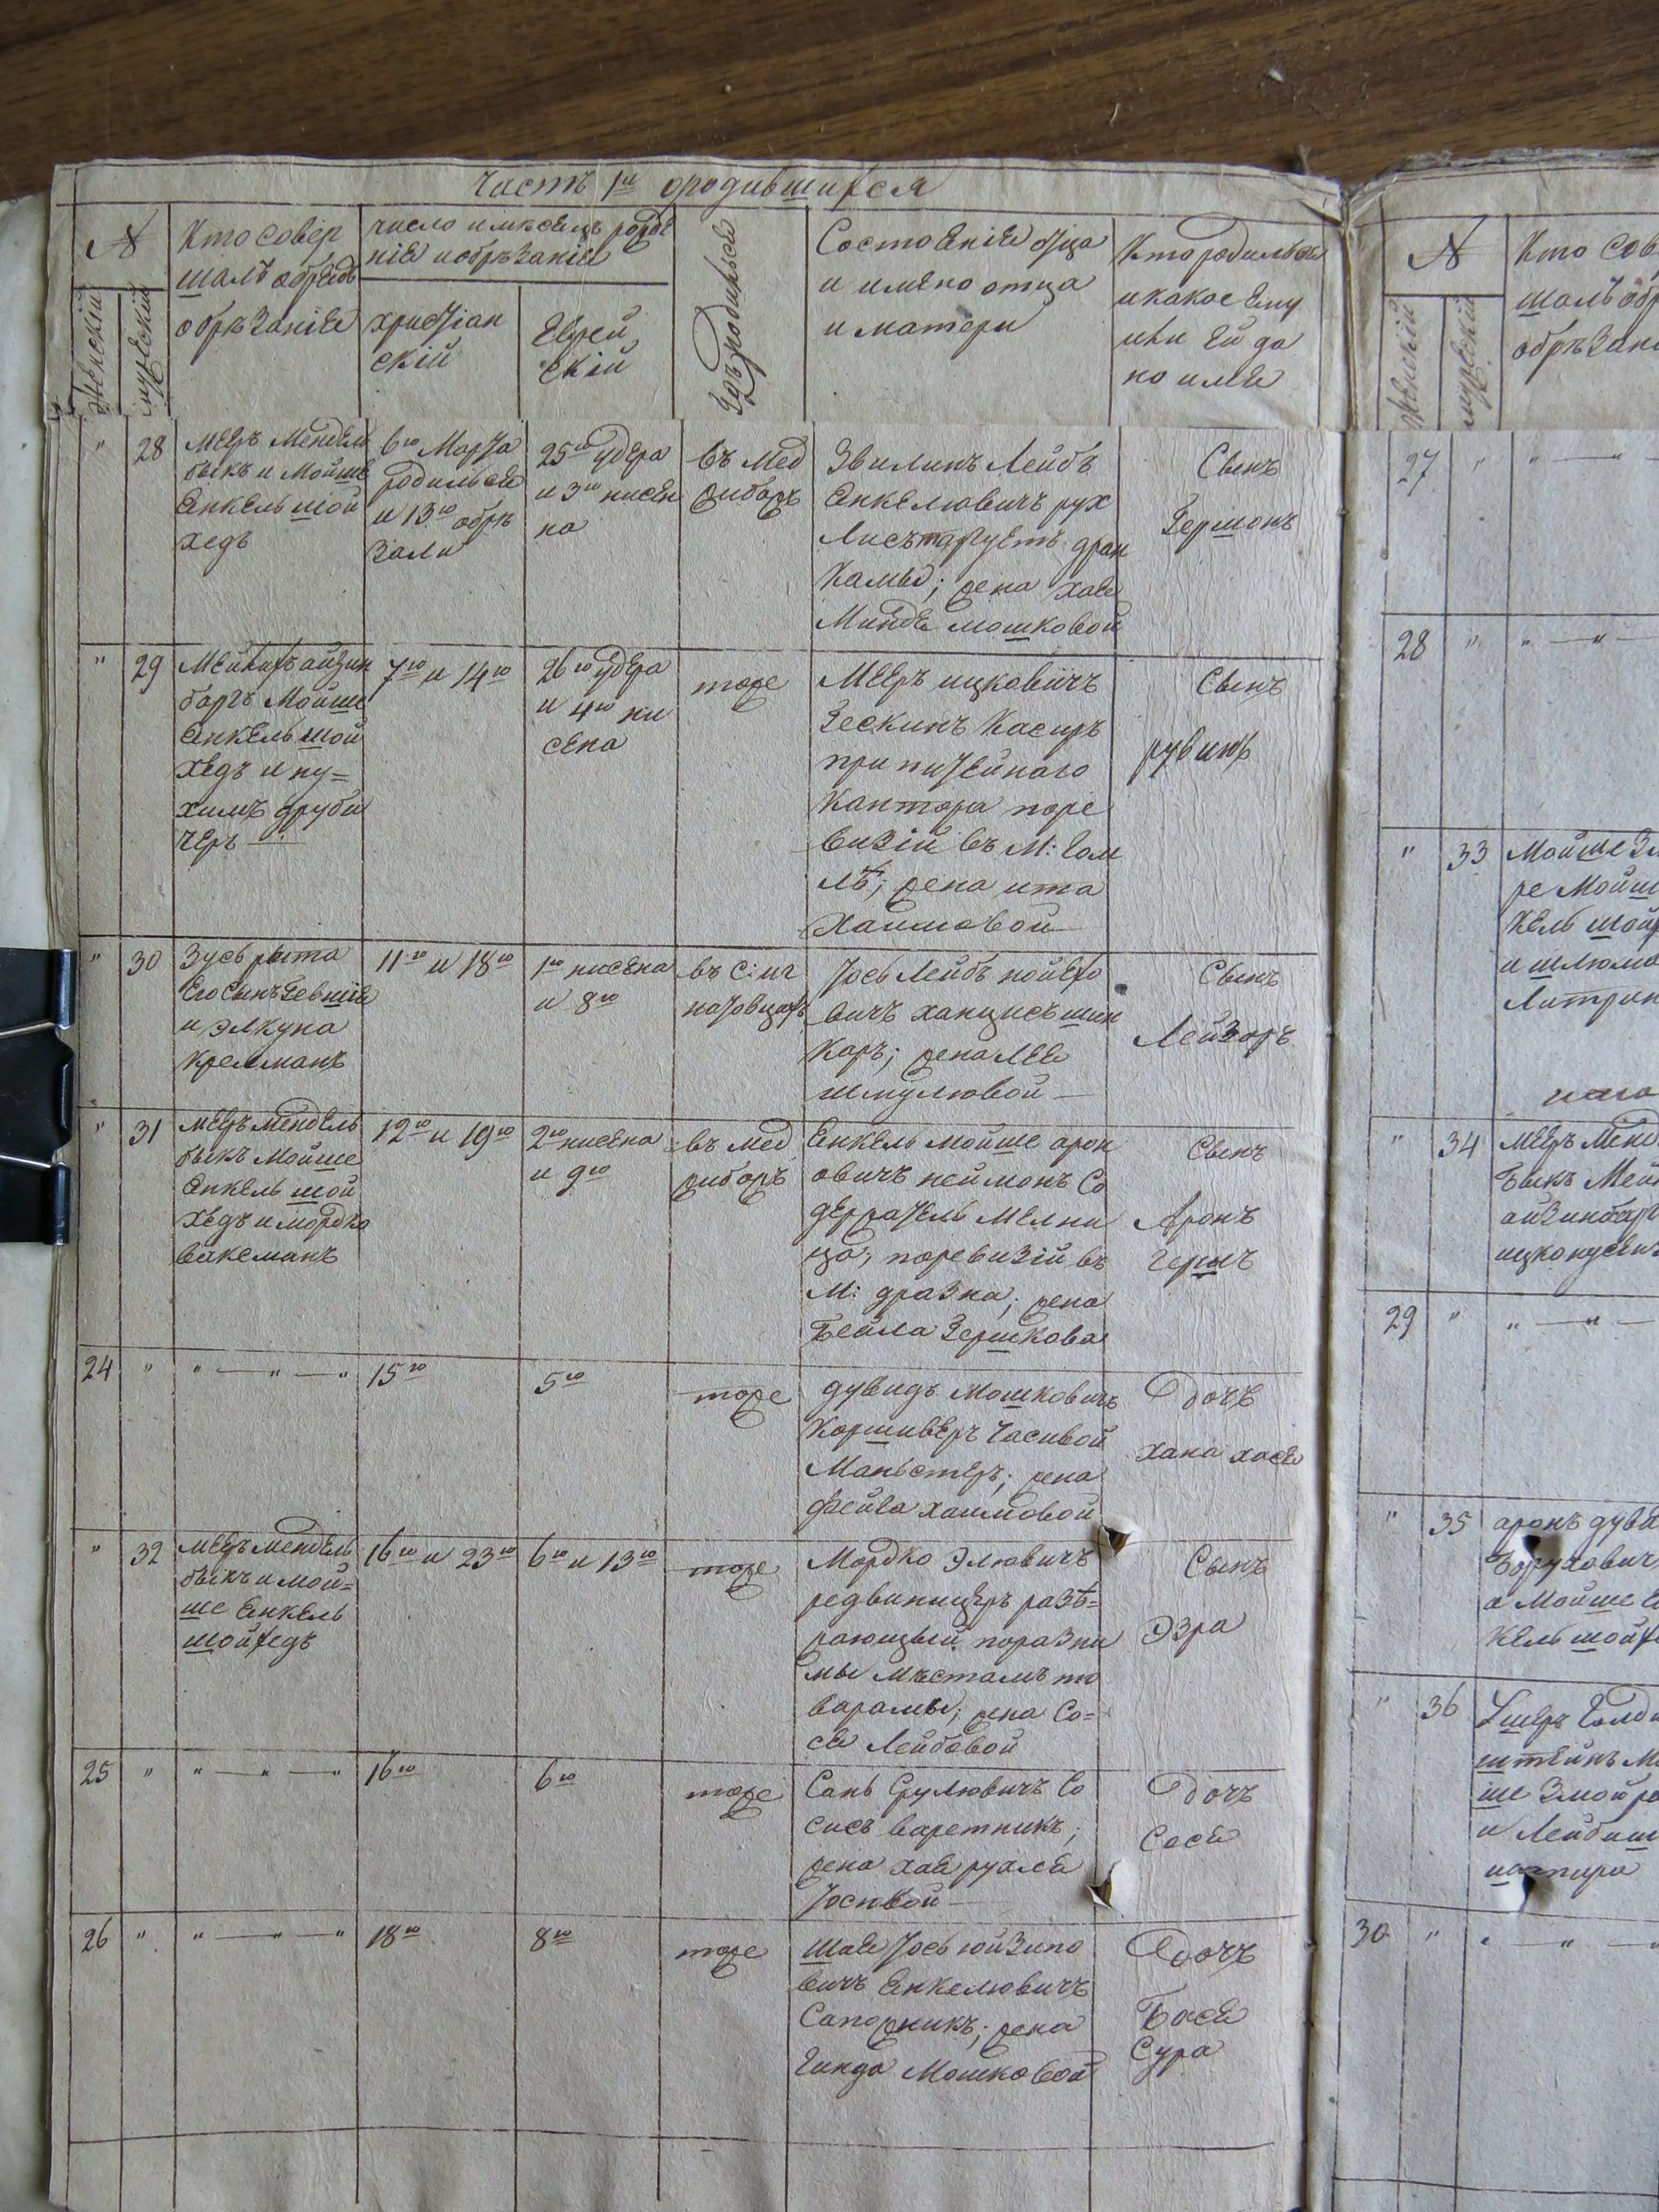 Часть 1я ородившихся
№
Женскій
мужескій
Кто совер
шалъ обрядъ
обрѣзаніе
число имѣсяцъ рожде
нія иобрѣзанія
христіан
скій
Еврей
скій
Гдѣ родился
Состоеніе отца
и имено отца
и матери
Кто родился
икакое ему
или ей да
но имя
" 28
Мееръ Мендель
быкъ и Мойше
Енкель шой
хедъ
6го Марта
родился
и 13го обрѣ
зали
25го удера
и 3го нисен
на
въ Мед
жибожъ
Звилинъ Лейбъ
Енкелювичъ рух
лисъ торгуетъ дран
камы; жена хая
Минде мошковой
Сынъ
Гершонъ
" 29
Мейлахъ айзин
баргъ Мойше
Енкель шой
хедъ и ну=
химъ друби
черъ
7го и 14го
26го удера
и 4го ни
сена
тоже
Мееръ ицковичъ
Зескинъ Касиръ
при питейнаго
Кантора поре
визій въ М: Гом
лѣ; жена ита
Хаимовой
Сынъ
рувинъ
" 30
Зусь рыта
Его Сынъ
и Элкуна
Кремманъ
11го и 18го
1го нисена
и 8го
въ С: иг
натовцахъ
Іось Лейбъ нойехо
вичъ ханцисъ шин
каръ; жена Лея
шмулювой
Сынъ
Лейзоръ
" 31
Мееръ Мендель
быкъ Мойше
Енкель шой
хедъ и мордко
ваксманъ
12го и 19го
2го нисена
и 9го
въ мед
жибожъ
Енкель мойше арон
овичъ неймонъ Со
держатель Мелни
ца, поревизій въ
М: дразна; жена
Бейла Гершкова
Сынъ
Аронъ
Гершъ
24 "
" — " — "
15го
5го
тоже
дувидъ мошковичъ
Коршиверъ Часивой
Маньстеръ; жена
фейга хаимовой
Дочъ
хана хася
" 32
Мееръ мендель
быкъ и мой=
ше Енкель
шойхедъ
16го и 23го
6го и 13го
тоже
Мордко Элювичъ
редвиницеръ разѣ=
жающый поразни
мы мѣстамъ то
варамы; жена Со=
ся Лейбовой
Сынъ
Эзра
25 "
" — " — "
16го
6го
тоже
Сань Срулювичъ Со
сисъ варетникъ;
жена хая рухля
Іосювой
Дочъ
Сося
26 "
" — " — "
18го
8го
тоже
Шая Іось юйзипо
вичъ Енкелювичъ
Сапожникъ; жена
Гинда Мошковой
Дочъ
Бася
Сура
№
Женскій
мужескій
Кто сов
шалъ обр
обрѣзані
27 " " —
28 " " — " —
" 33
Мойше
ре Мойш
Кель шой
и шлюма
Литрин
" 34
Мееръ Менд
быкъ Мей
айзинбарг
29 " " — " —
" 35
аронъ дуви
Борухович
а Мойше Е
Кель шойх
" 36
Ушеръ Голд
штейнъ М
ше Змойро
и Лейбиш
шапира
30 " " — " —